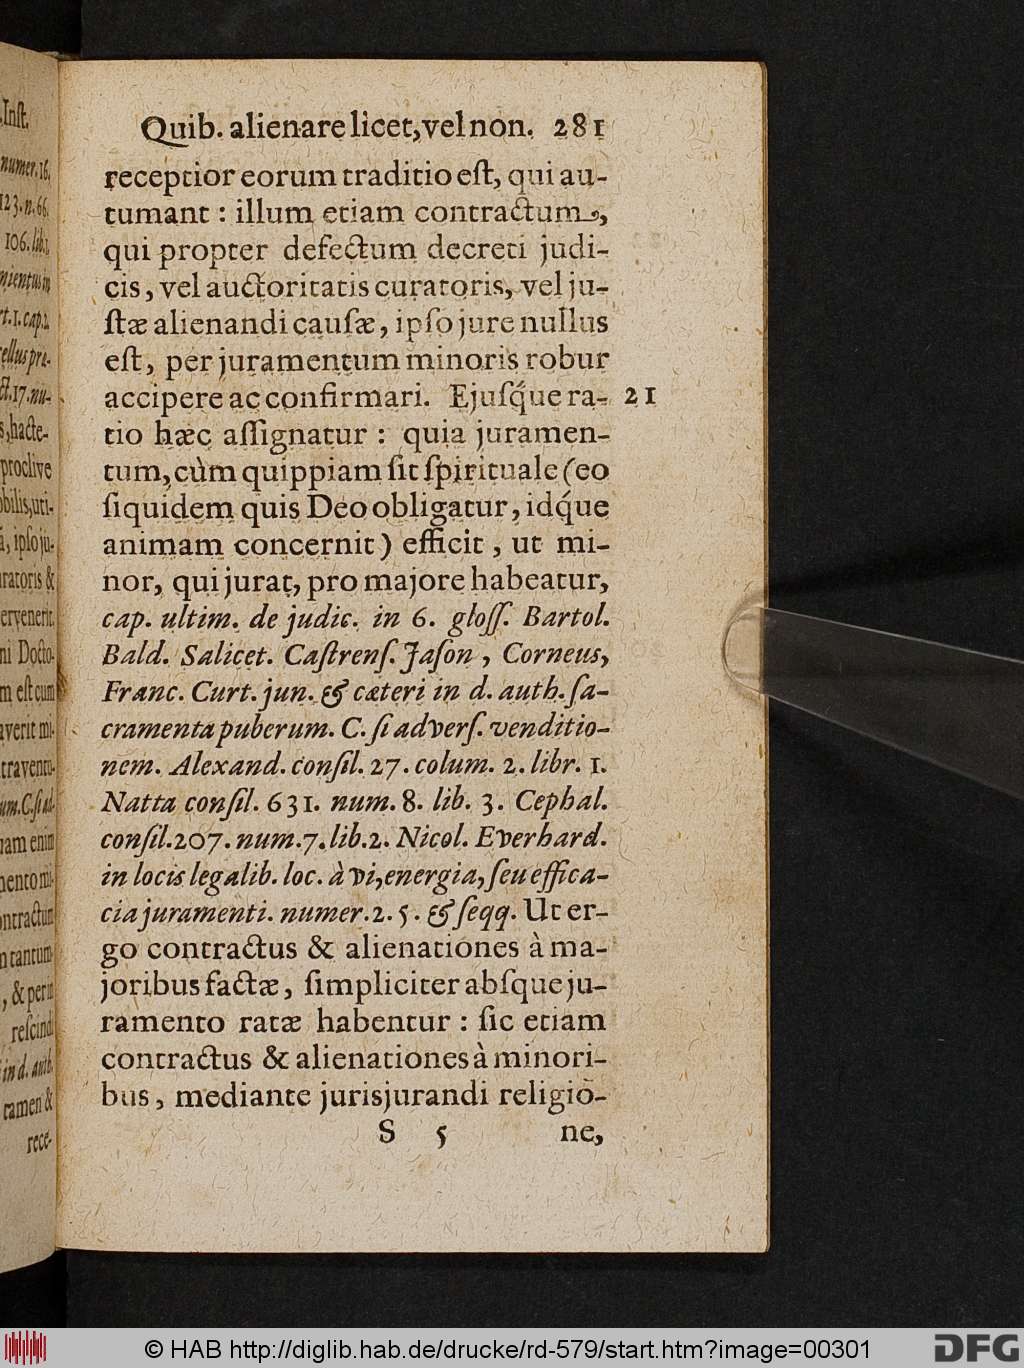 .Inst.
numer.16.
123.n.66.
106.lib.1
rt.1.cap.2
ct.17.nu-
s,hacte-
proclive
obilis,uti-
ã, ipso ju-
uratoris &
ervenerit.
ni Docto-
m est cum
averit mi-
traventũ-
um.C.si ad
nam enim
mento mi-
ontractum
n tantum
, & per in
rescindi
in d. auth.
tamen &
rece-
Quib. alienare licet, vel non. 281
receptior eorum traditio est, qui au-
tumant : illum etiam contractum,
qui propter defectum decreti judi-
cis, vel auctoritatis curatoris, vel ju-
stæ alienandi causæ, ipso jure nullus
est, per juramentum minoris robur
accipere ac confirmari. Ejusq́ue ra- 21
tio hæc assignatur : quia juramen-
tum, cùm quippiam sit spirituale (eo
siquidem quis Deo obligatur, idq́ue
animam concernit) efficit, ut mi-
nor, qui jurat, pro majore habeatur,
cap. ultim. de judic. in 6. gloss. Bartol.
Bald. Salicet. Castrens. Jason, Corneus,
Franc. Curt. jun. & cæteri in d. auth. sa-
cramenta puberum. C. si advers. venditio-
nem. Alexand. consil. 27. colum. 2. libr. 1.
Natta consil. 631. num. 8. lib. 3. Cephal.
consil. 207. num. 7. lib. 2. Nicol. Everhard.
in locis legalib. loc. à vi, energia, seu effica-
cia juramenti. numer. 2. 5. & seqq. Ut er-
go contractus & alienationes à ma-
joribus factæ, simpliciter absque ju-
ramento ratæ habentur : sic etiam
contractus & alienationes à minori-
bus, mediante jurisjurandi religio-
S 5 ne,
© HAB http://diglib.hab.de/drucke/rd-579/start.htm?image=00301
DFG